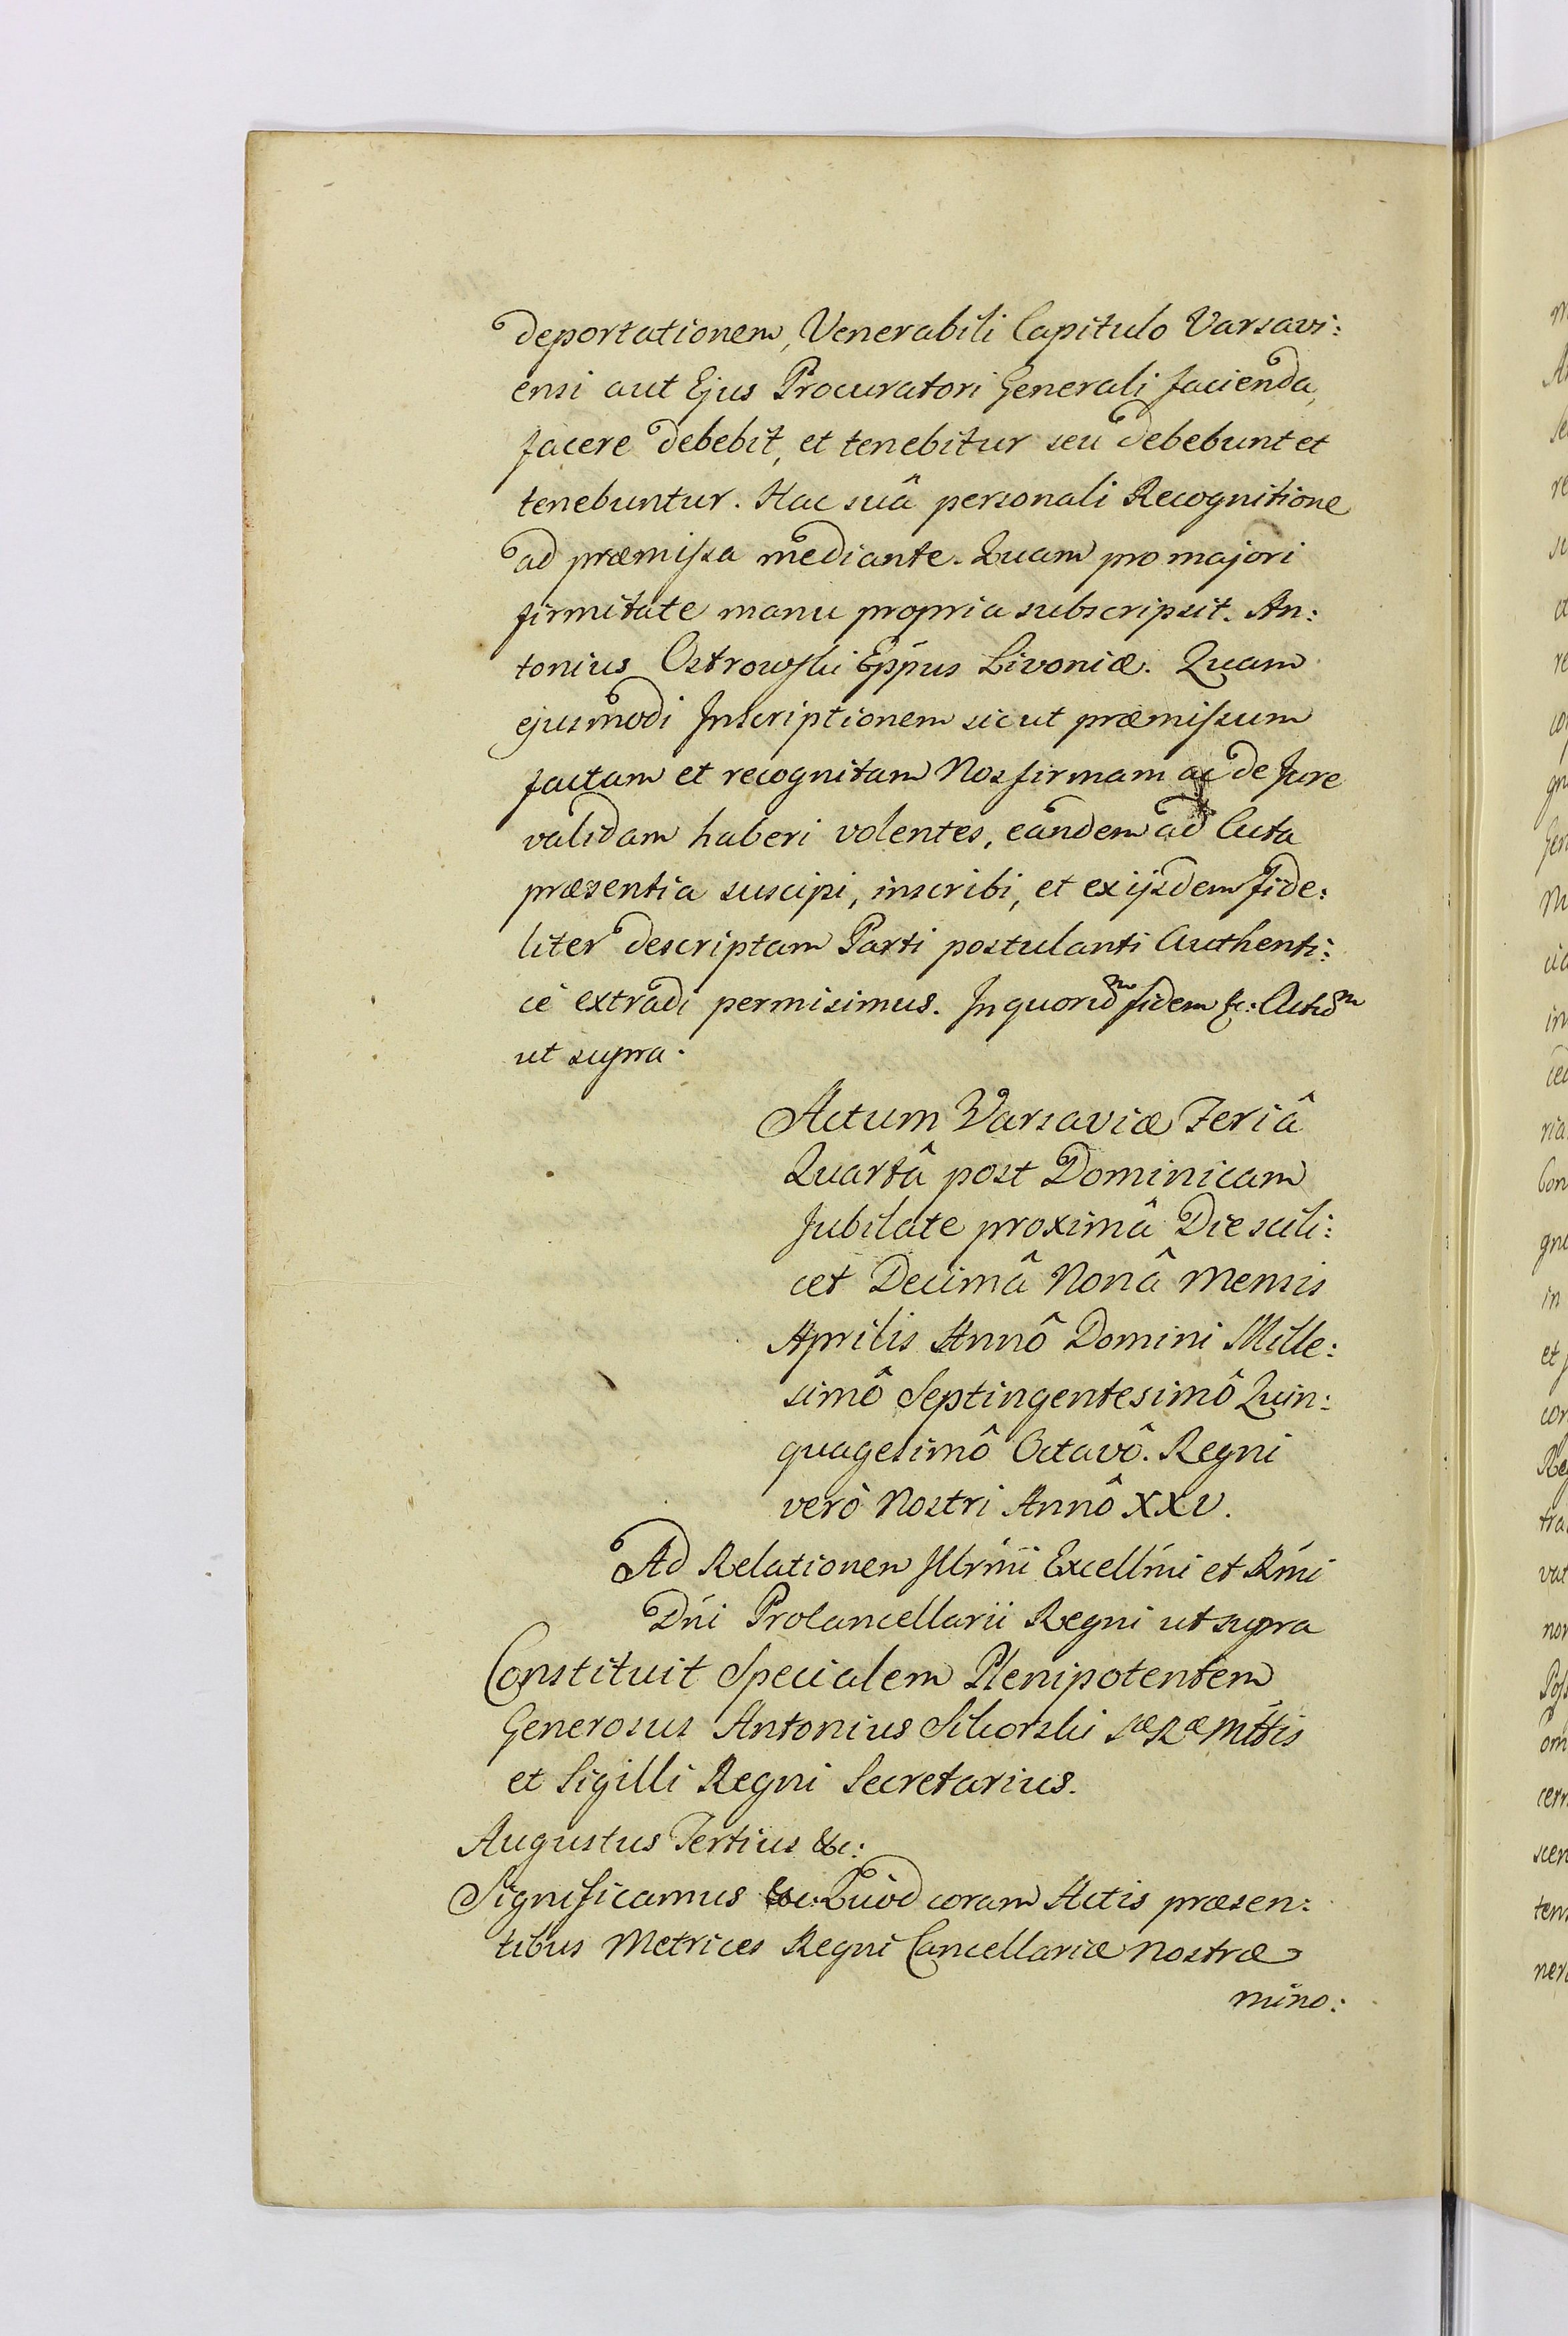 deportationem, Venerabili Capitulo Varsavi:
ensi aut Ejus Procuratori Generali facienda,
facere debebit, et tenebitur seu debebunt et
tenebuntur. Hac suâ personali Recognitione
ad præmissa mediante. Quam pro majori
firmitate manu propria subscripsit. An:
tonius Ostrowski Eppus Livoniæ. Quam
ejusmodi Inscriptionem sicut præmissum
factam et recognitam Nos firmam ac de Jure
validam haberi volentes, eandem ad Acta
præsentia suscipi, inscribi, et ex ijsdem fide:
liter descriptam Parti postulanti Authenti:
cè extradi permisimus. In quorum fidem &c: Actum
ut supra.
Actum Varsaviæ Feriâ
Quartâ post Dominicam
Jubilate proximâ Die scili:
cet Decimâ Nonâ Mensis
Aprilis Annô Domini Mille:
simô Septingentesimô Quin:
quagesimô Octavô. Regni
verò Nostri Annô XXV.
Ad Relationem Illrmi Excellmi et Rmi
Dni Procancellarii Regni ut supra
Constituit Specialem Plenipotentem
Generosus Antonius Sikorski SæRæMttis
et Sigilli Regni Secretarius.
Augustus Tertius &c:
Significamus &c: Quod coram Actis præsen:
tibus Metrices Regni Cancellariæ Nostræ
mino: